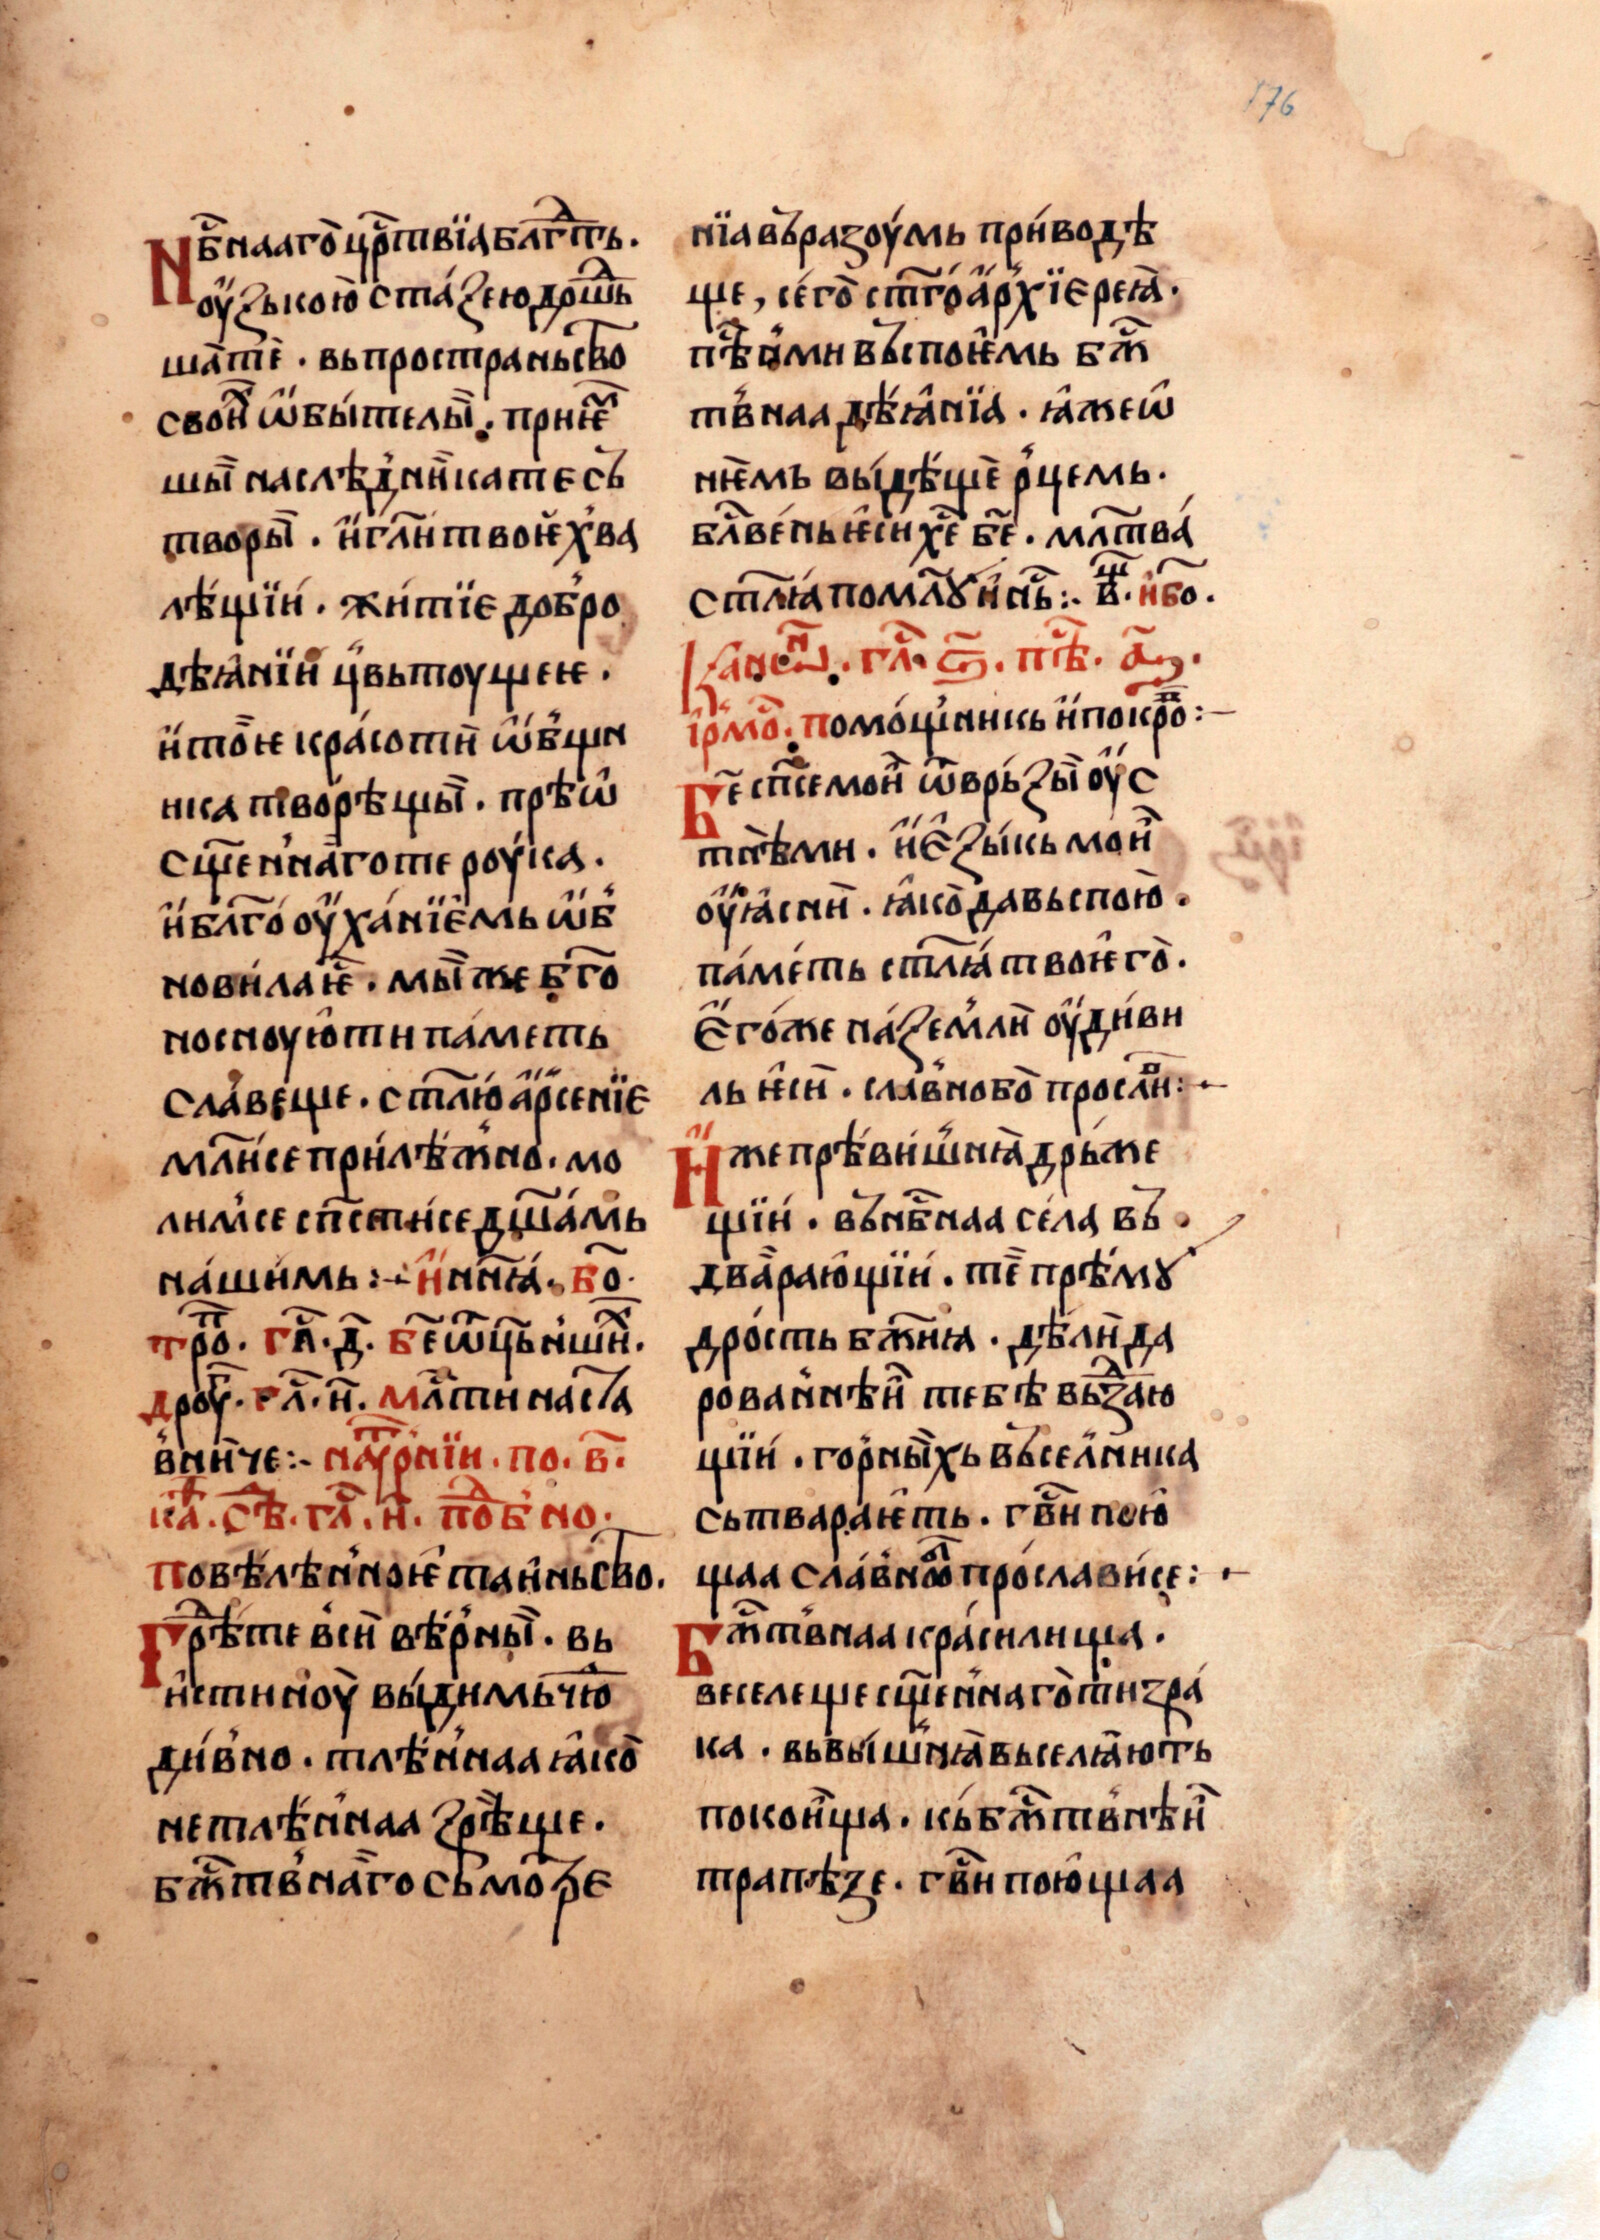 176
Нб҃нааго црⷭ҇твїа блгⷣть.
оузькою стазею дошьⷣ
шате. вь пространьство
своиⷯ ѡбытелы. приѥⷨ
шы наслѣдника те сь
творы. и гл҃и твоѥ хва
лѣщїи. житїе добро
дѣꙗнїи цвьтоущеѥ.
и тоѥ красоти ѡбщи
ника творѣщы. прѣѡ
сщ҃еннаго те роука.
и блг҃ооуханїѥмь ѡб
новила ѥⷭ҇. мы же бг҃о
носноую ти паметь
славеще. ст҃лю арсенїе
мл҃и се прилѣжно. мо
лимсе сп҃сти се дш҃амь
нашимь:~ и нн҃ꙗ. бо.
троⷫ. глⷭ. д҃. бе҃ ѡц҃ь нашиⷯ.
дроуⷢ. глⷭ. и҃. млⷭ҇ти наста
вниче:~ на оутрⷩїи. по. в҃.
каⷳ. сѣⷣ. глⷭ. и҃. поⷣбно.
Повѣлѣнноѥ таиньство.
Грѣⷣте вси вѣрны. вь
истиноу видимь чюⷣ
дивно. тлѣннаа ꙗко
нетлѣннаа зрѣще.
бжⷭ҇твнаго сьмотре
нїа вь разоумь приводѣ
ще, сего ст҃го архїереꙗ.
пѣⷭ҇нми вьспоѥмь бжⷭ҇
твнаа дѣꙗнїа. ꙗже ѡ
нѥмь выдѣще рцемь.
бл҃вень ѥси хе҃ бе҃. млт҃ва
ст҃лꙗ помл҃ꙋи нⷭ҇ь:. вⷳ. и бо.
Канѡⷩ. глⷭ. ѕ҃. пѣⷭ. а҃.
ірмоⷭ. Помощникь и покроⷡ:~
Бе҃ сп҃се мои ѿврьзы оус
тнѣми. и езыкь мои
оуꙗсни. ꙗко да вьспою.
паметь ст҃лꙗ твоѥго.
Егоже на земли оудиви
ль ѥси. славно бо прослаⷡи:~
Иже прѣвишнꙗ дрьже
щїи. вь нб҃наа села вь
двараюшїи. те прѣмꙋ
дрость бж҃иꙗ. дѣли да
рованнѣи тебѣ вьзⷣаю
щїи. горныхь вьселника
сьтвараѥть. гв҃и пою
щаа славноⷡо прослави се:~
Бжⷭ҇твнаа красилища.
веселеще сщ҃еннаго ти зра
ка. вь вышнꙗ вьселꙗють
покоища. кь бжⷭ҇твнѣи
трапѣзе. гв҃и поющаа